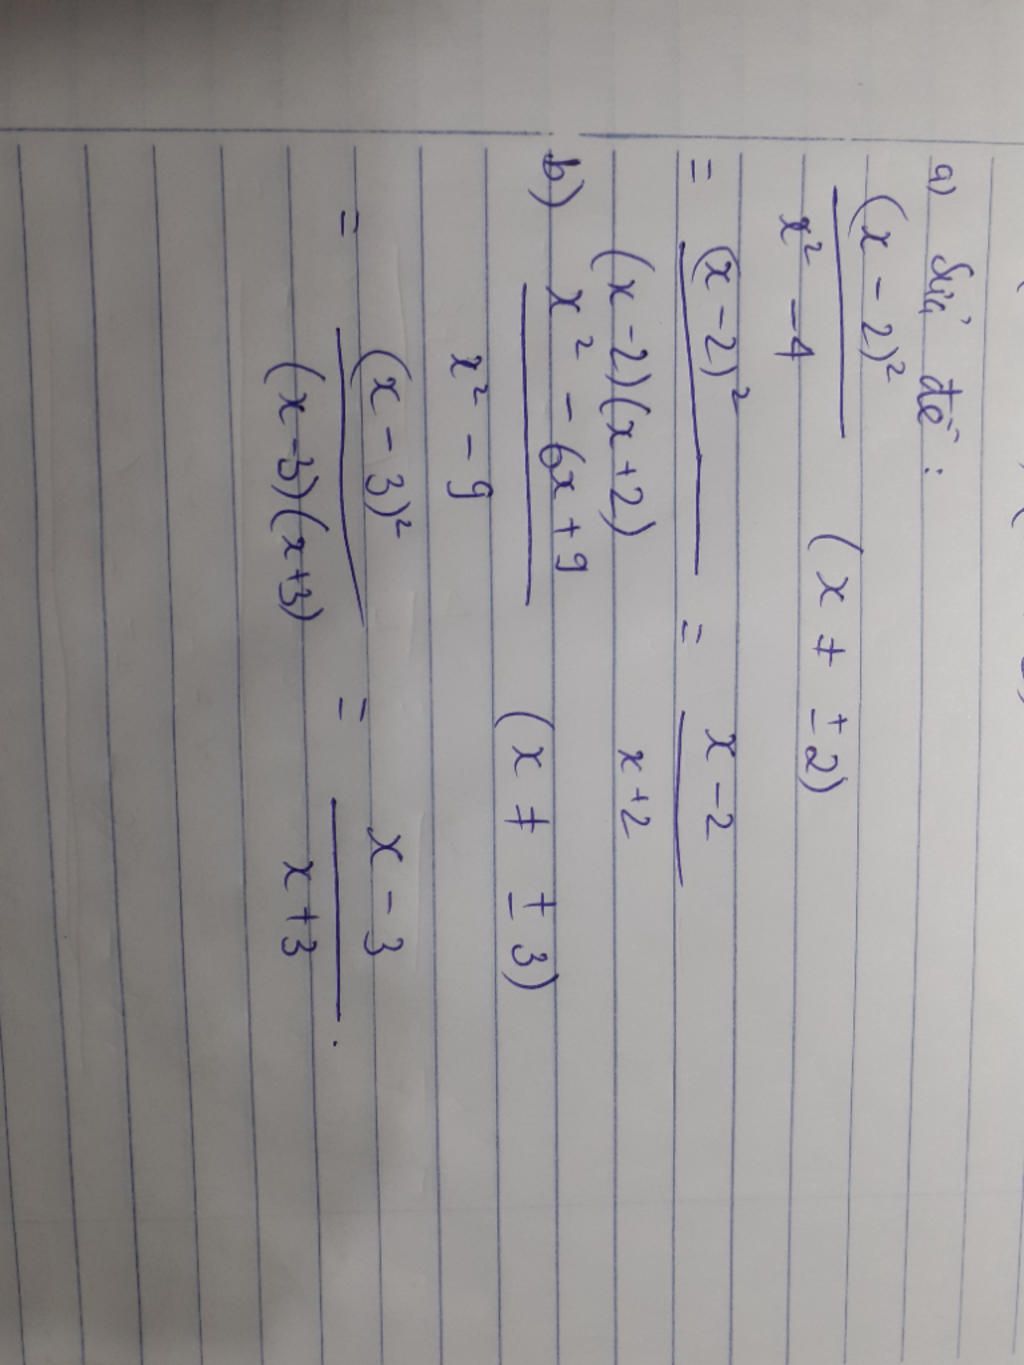 a) Sửa đề:
(x - 2)²
x² - 4
(x ≠ ± 2)
= (x - 2)² / (x - 2)(x + 2) = x - 2 / x + 2
b) x² - 6x + 9
x² - 9
(x ≠ ± 3)
= (x - 3)² / (x - 3)(x + 3) = x - 3 / x + 3 .